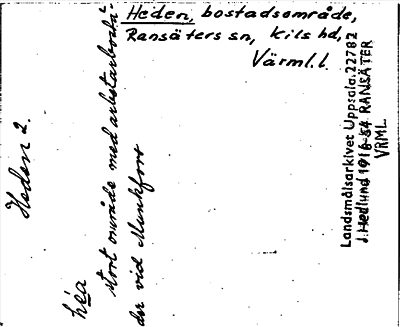 Heden, bostadsområde,
Ransäters sn, Kils hd,
Värml. l.
Heden 2.
héa
stort område med arbetarbostä-
der vid Munkfors
Landsmålsarkivet Uppsala. 22782
J. Hedlund 1916-54 RANSÄTER
VRML.